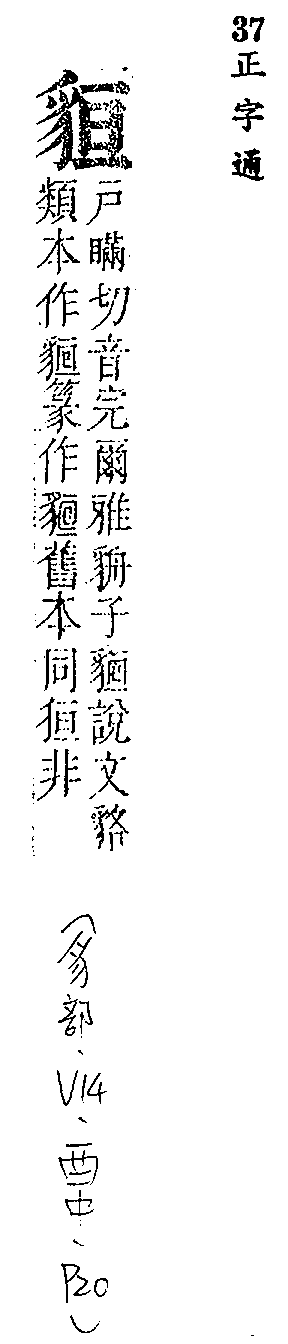 37正字通
貆
戶瞞切音完爾雅貈子貆說文貉
類本作貆篆作貆舊本同狟非
(豸部、V14、酉中、P20)